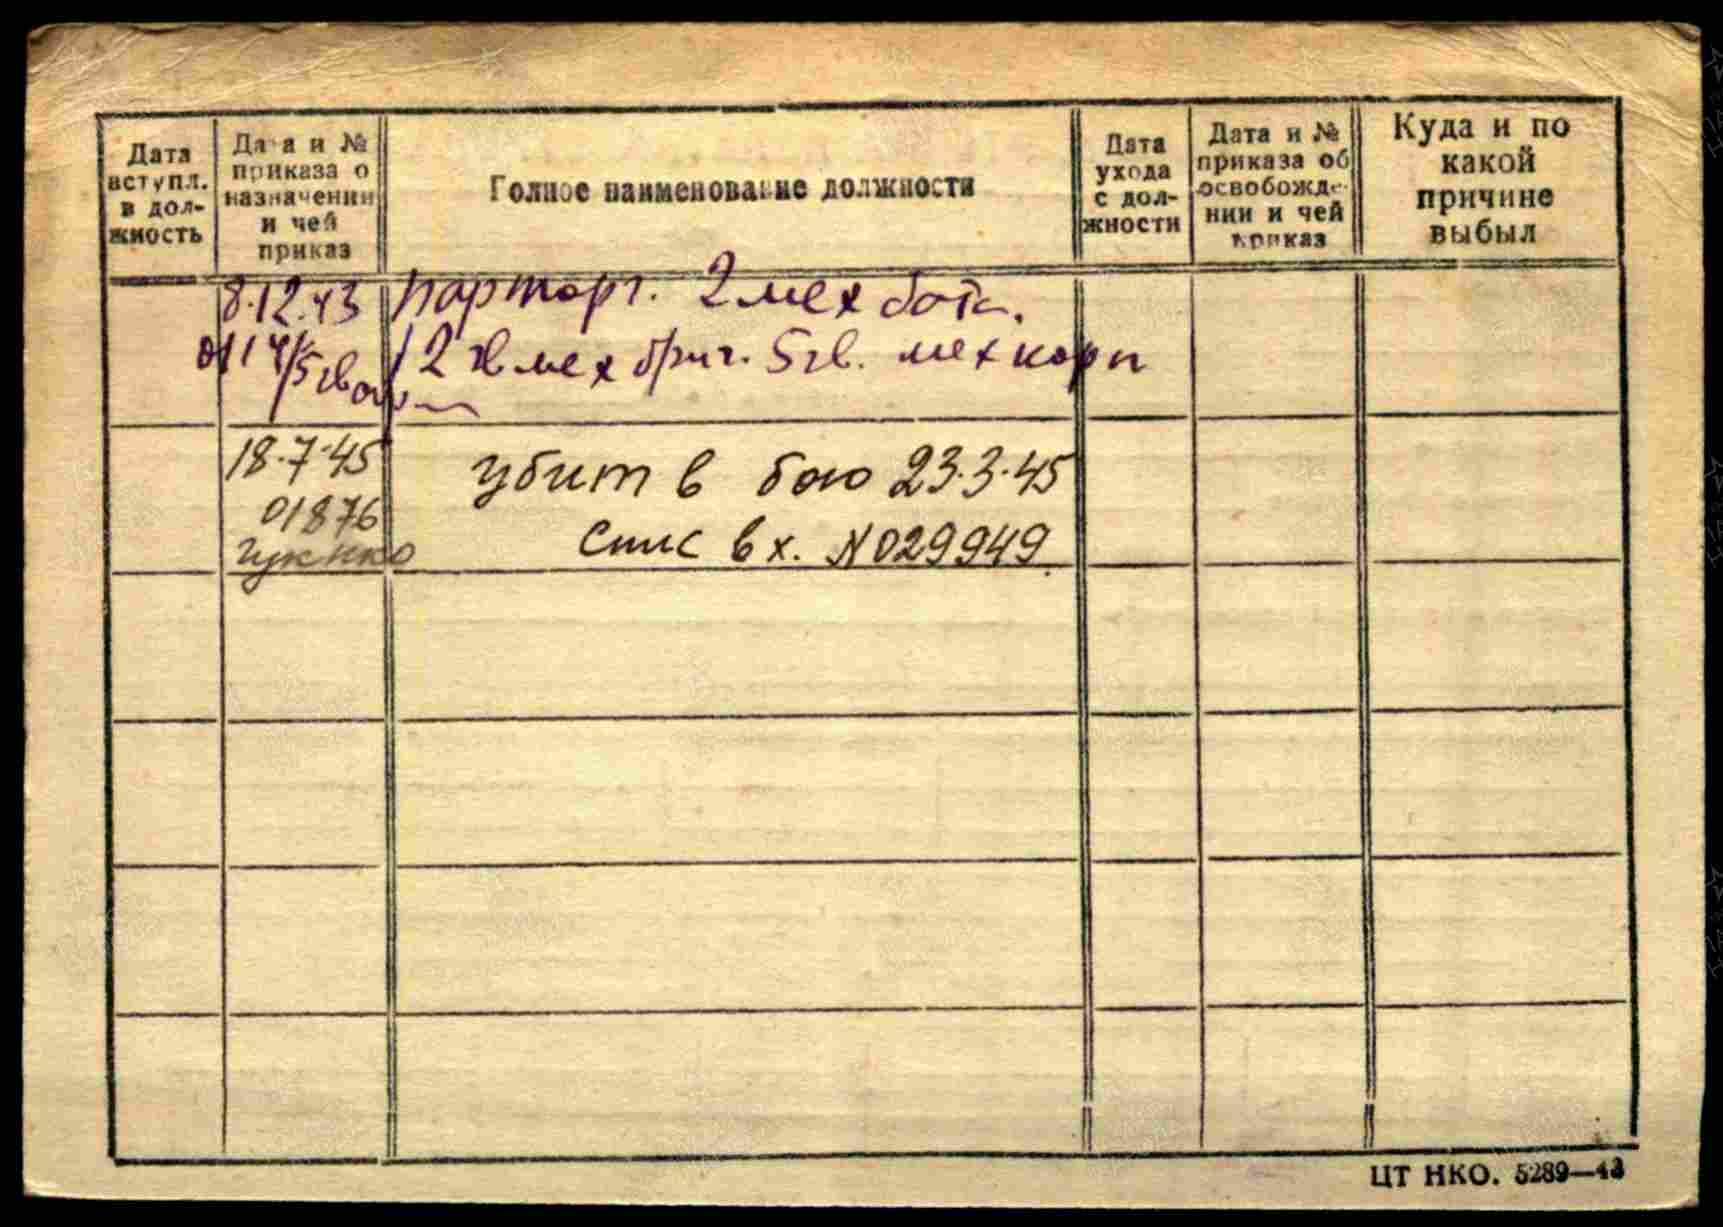 Дата
вступл.
в дол-
жность
Дата и №
приказа о
назначении
и чей
приказ
Полное наименование должности
Дата
ухода
с дол-
жности
Дата и №
приказа об
освобожде-
нии и чей
приказ
Куда и по
какой
причине
выбыл
8.12.43 парторг. 2 мех бата.
5 гв 2 гв мех бриг. 5 гв. мех корп
18.7.45
01876
гук нко
убит в бою 23.3.45
спис вх. N029949
ЦТ НКО. 5289—43